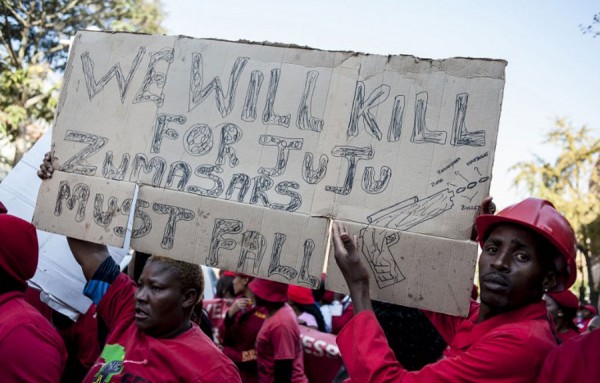 WE WILL KILL
FOR JUJU
ZUMASARS
MUST FALL